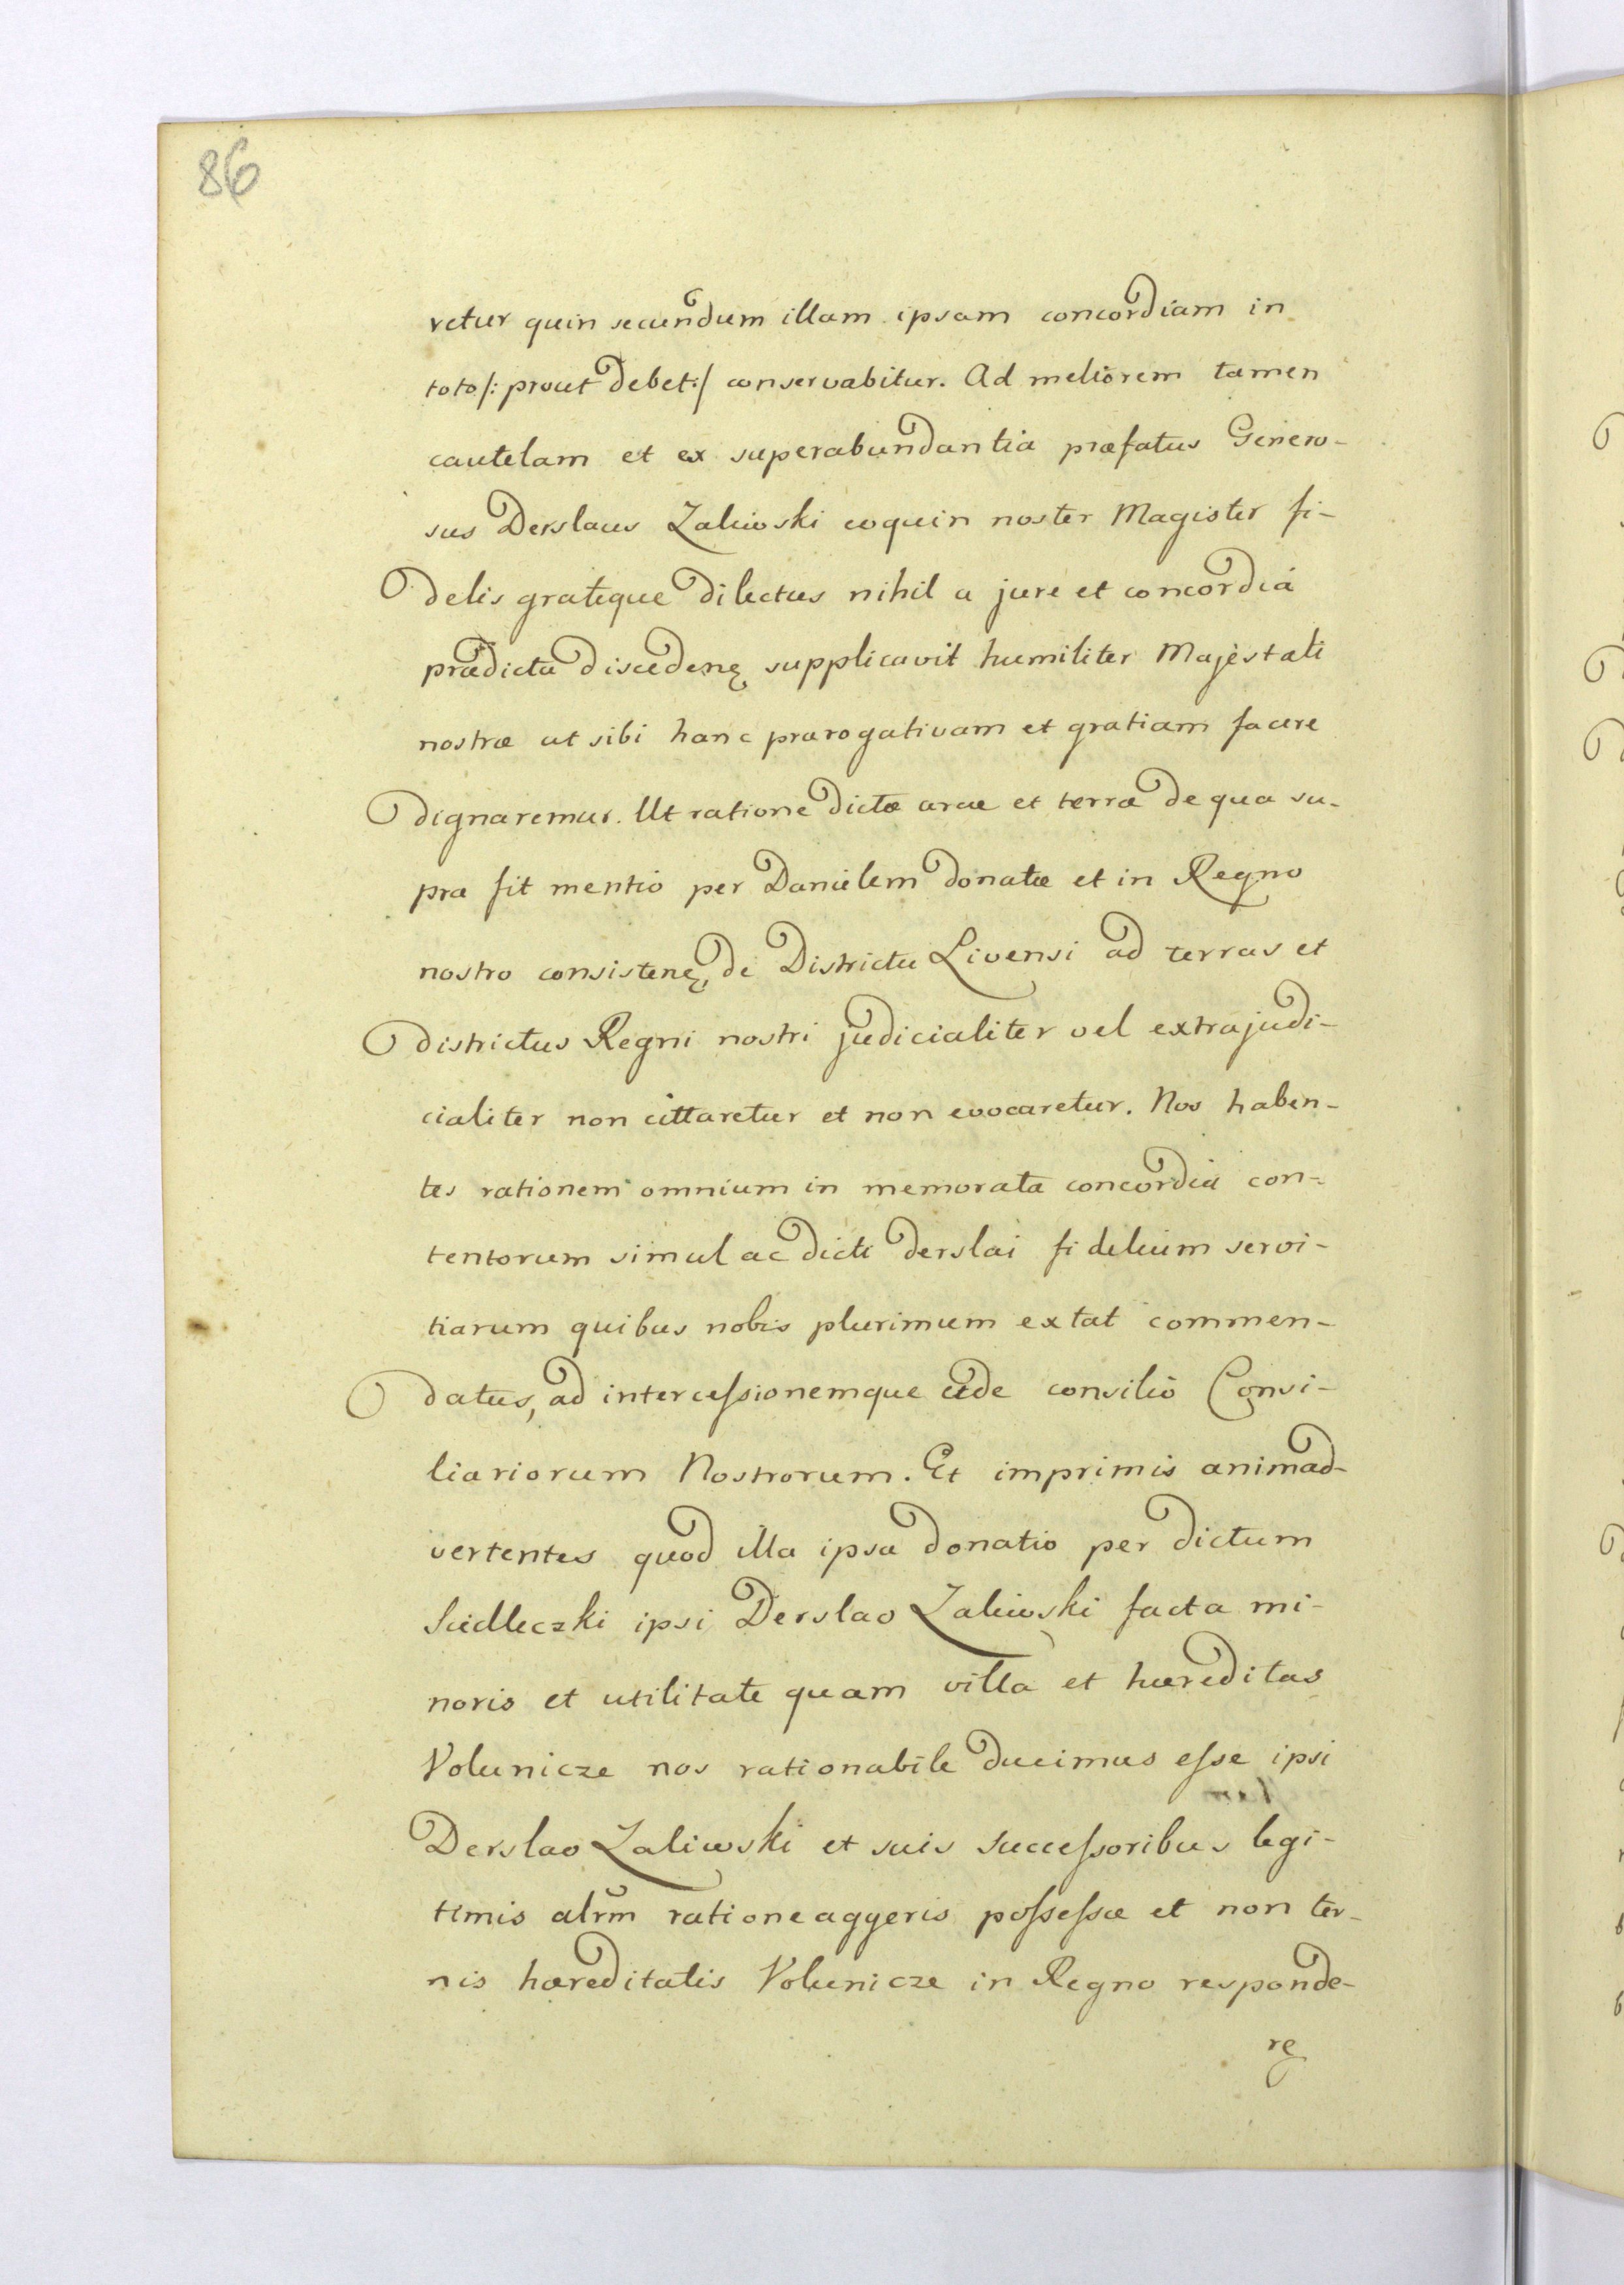 86
retur quin secundum illam ipsam concordiam in
toto /: prout debet :/ conservabitur. Ad meliorem tamen
cautelam et ex superabundantia præfatus Genero-
sus Derslaus Zaliwski coquin noster Magister fi-
delis grateque dilectus nihil a jure et concordiá
prædicta discedenę supplicavit humiliter Majestati
nostræ ut sibi hanc prærogativam et gratiam facere
dignaremur. Ut ratione dictæ areæ et terræ de qua su-
pra fit mentio per Danielem donatæ et in Regno
nostro consistenę de Districtu Livensi ad terras et
districtus Regni nostri judicialiter vel extrajudi-
cialiter non cittaretur et non evocaretur. Nos haben-
tes rationem omnium in memorata concordiá con-
tentorum simul ac dicti derslai fidelium servi-
tiarum quibus nobis plurimum extat commen-
datus, ad intercessionemque et de consilio Consi-
liariorum Nostrorum. Et imprimis animad-
vertentes quod illa ipsa donatio per dictum
Siedleczki ipsi Derslao Zaliwski facta mi-
noris et utilitate quam villa et hæreditas
Volunicze nos rationabile ducimus esse ipsi
Derslao Zaliwski et suis successoribus legi-
timis alrm̃ ratione aggeris possessæ et non ter-
nis hæreditatis Volunicze in Regno responde-
re